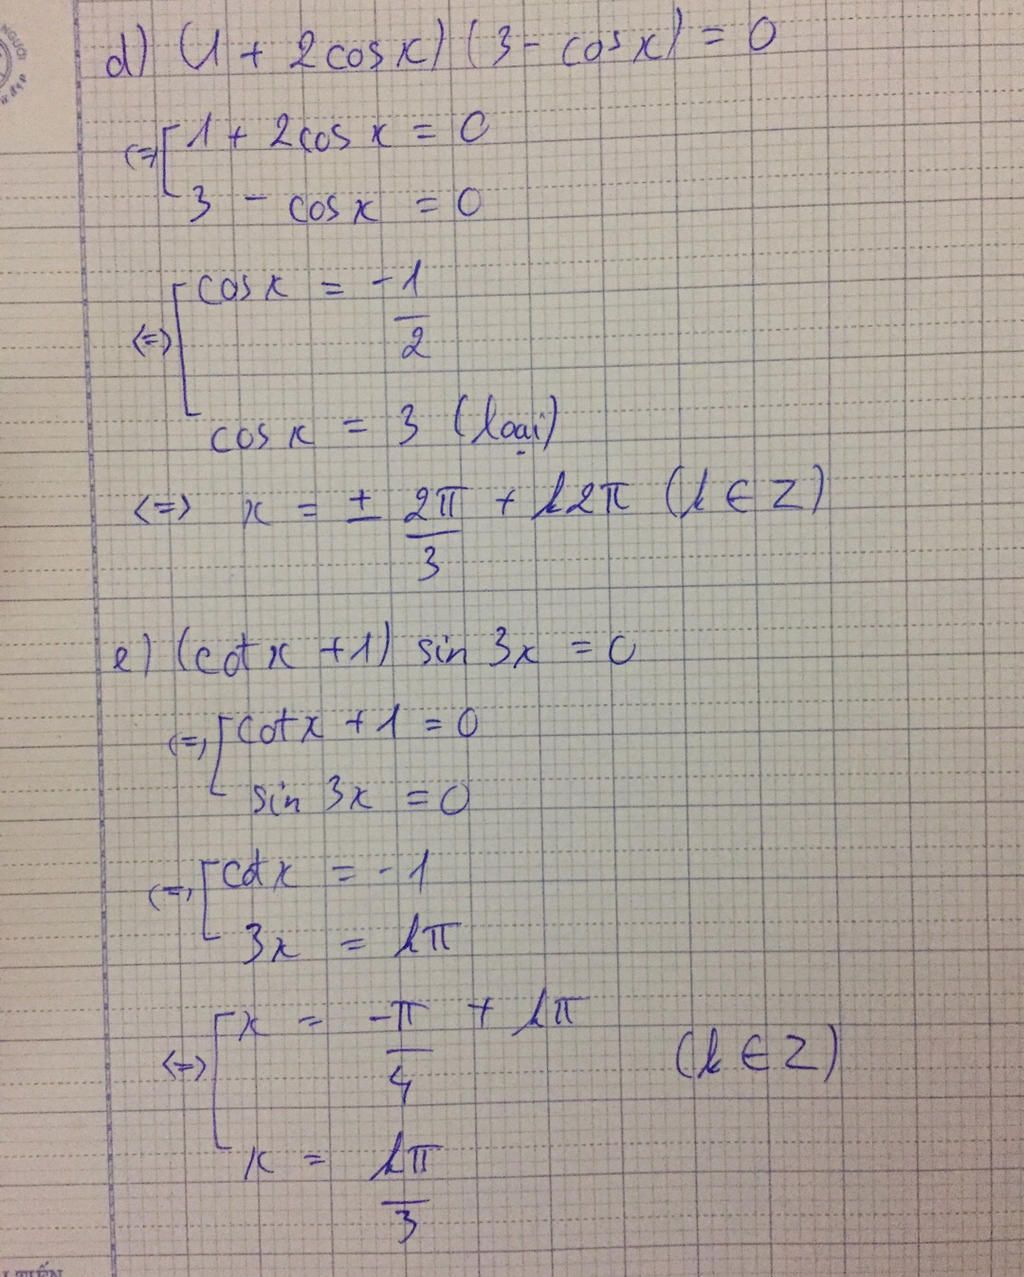 NGƯỜI
d) (1 + 2cosx) (3 - cosx) = 0
<=> [ 1 + 2cosx = 0
3 - cosx = 0
<=> [ cosx = -1/2
cosx = 3 (loại)
<=> x = ± 2π/3 + k2π (k ∈ Z)
e) (cotx +1) sin 3x = 0
<=> [ cotx + 1 = 0
sin 3x = 0
<=> [ cotx = -1
3x = kπ
<=> [ x = -π/4 + kπ
(k ∈ Z)
x = kπ/3